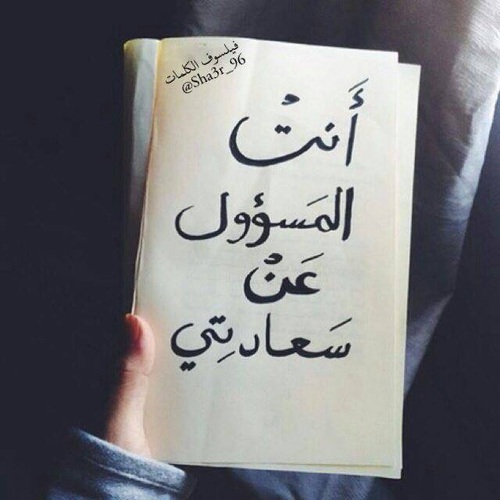 فيلسوف الكلمات
@Sha3r_96
أَنتْ
المَسؤول
عَنْ
سَعادتِي